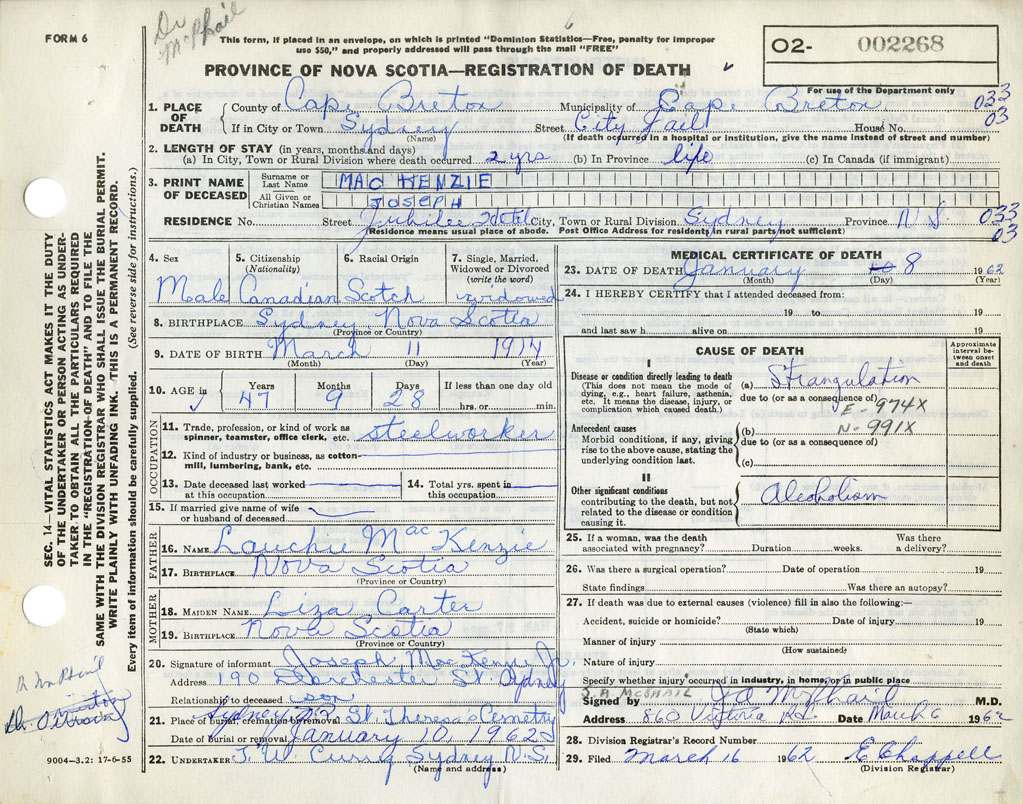 FORM 6
Dr McPhail
This form, if placed in an envelope, on which is printed "Dominion Statistics—Free, penalty for improper
use $50," and properly addressed will pass through the mail "FREE"
O2- 002268
PROVINCE OF NOVA SCOTIA—REGISTRATION OF DEATH
For use of the Department only
033
03
1. PLACE OF DEATH
County of Cape Breton Municipality of Cape Breton
If in City or Town Sydney Street City Jail House No.
(Name) (If death occurred in a hospital or institution, give the name instead of street and number)
2. LENGTH OF STAY (in years, months and days)
(a) In City, Town or Rural Division where death occurred 2 yrs (b) In Province life (c) In Canada (if immigrant)
3. PRINT NAME OF DECEASED
Surname or Last Name MAC KENZIE
All Given or Christian Names JOSEPH
RESIDENCE No. Street Jubilee Hotel City, Town or Rural Division Sydney Province N.S. 033
03
(Residence means usual place of abode. Post Office Address for residents in rural parts not sufficient)
4. Sex
Male
5. Citizenship
(Nationality)
Canadian
6. Racial Origin
Scotch
7. Single, Married,
Widowed or Divorced
(write the word)
widowed
8. BIRTHPLACE Sydney, Nova Scotia
(Province or Country)
9. DATE OF BIRTH March 11 1914
(Month) (Day) (Year)
10. AGE in
Years 47
Months 9
Days 28
If less than one day old
hrs. or min.
OCCUPATION
11. Trade, profession, or kind of work as
spinner, teamster, office clerk, etc. steelworker
12. Kind of industry or business, as cotton-
mill, lumbering, bank, etc.
13. Date deceased last worked
at this occupation
14. Total yrs. spent in
this occupation
15. If married give name of wife
or husband of deceased
FATHER
16. NAME Lauchie MacKenzie
17. BIRTHPLACE Nova Scotia
(Province or Country)
MOTHER
18. MAIDEN NAME Liza Carter
19. BIRTHPLACE Nova Scotia
(Province or Country)
20. Signature of informant Joseph MacKenzie Jr.
Address 190 Dorchester St. Sydney
Relationship to deceased son
21. Place of burial, cremation or removal Sydney NS St. Theresa's Cemetry
Date of burial or removal January 10, 1962
22. UNDERTAKER T. W. Curry Sydney N.S.
(Name and address)
MEDICAL CERTIFICATE OF DEATH
23. DATE OF DEATH January 8 1962
(Month) (Day) (Year)
24. I HEREBY CERTIFY that I attended deceased from:
19 to 19
and last saw h alive on 19
CAUSE OF DEATH
Approximate interval between onset and death
I
Disease or condition directly leading to death
(This does not mean the mode of
dying, e.g., heart failure, asthenia,
etc. It means the disease, injury, or
complication which caused death.)
(a) Strangulation
due to (or as a consequence of)
E - 974X
N - 991X
Antecedent causes
Morbid conditions, if any, giving
rise to the above cause, stating the
underlying condition last.
(b)
due to (or as a consequence of)
(c)
II
Other significant conditions
contributing to the death, but not
related to the disease or condition
causing it.
Alcoholism
25. If a woman, was the death
associated with pregnancy? Duration weeks. Was there
a delivery?
26. Was there a surgical operation? Date of operation 19
State findings Was there an autopsy?
27. If death was due to external causes (violence) fill in also the following:—
Accident, suicide or homicide? Date of injury 19
(State which)
Manner of injury
(How sustained)
Nature of injury
Specify whether injury occurred in industry, in home, or in public place
J. A. MCPHAIL
Signed by J A McPhail M.D.
Address 860 Victoria Rd. Date March 6 1962
28. Division Registrar's Record Number
29. Filed March 16 1962 E Chappell
(Division Registrar)
SEC. 14—VITAL STATISTICS ACT MAKES IT THE DUTY
OF THE UNDERTAKER OR PERSON ACTING AS UNDER-
TAKER TO OBTAIN ALL THE PARTICULARS REQUIRED
IN THE "REGISTRATION OF DEATH" AND TO FILE THE
SAME WITH THE DIVISION REGISTRAR WHO SHALL ISSUE THE BURIAL PERMIT.
WRITE PLAINLY WITH UNFADING INK. THIS IS A PERMANENT RECORD.
Every item of information should be carefully supplied. (See reverse side for instructions.)
Dr McPhail
9004—3.2: 17-6-55